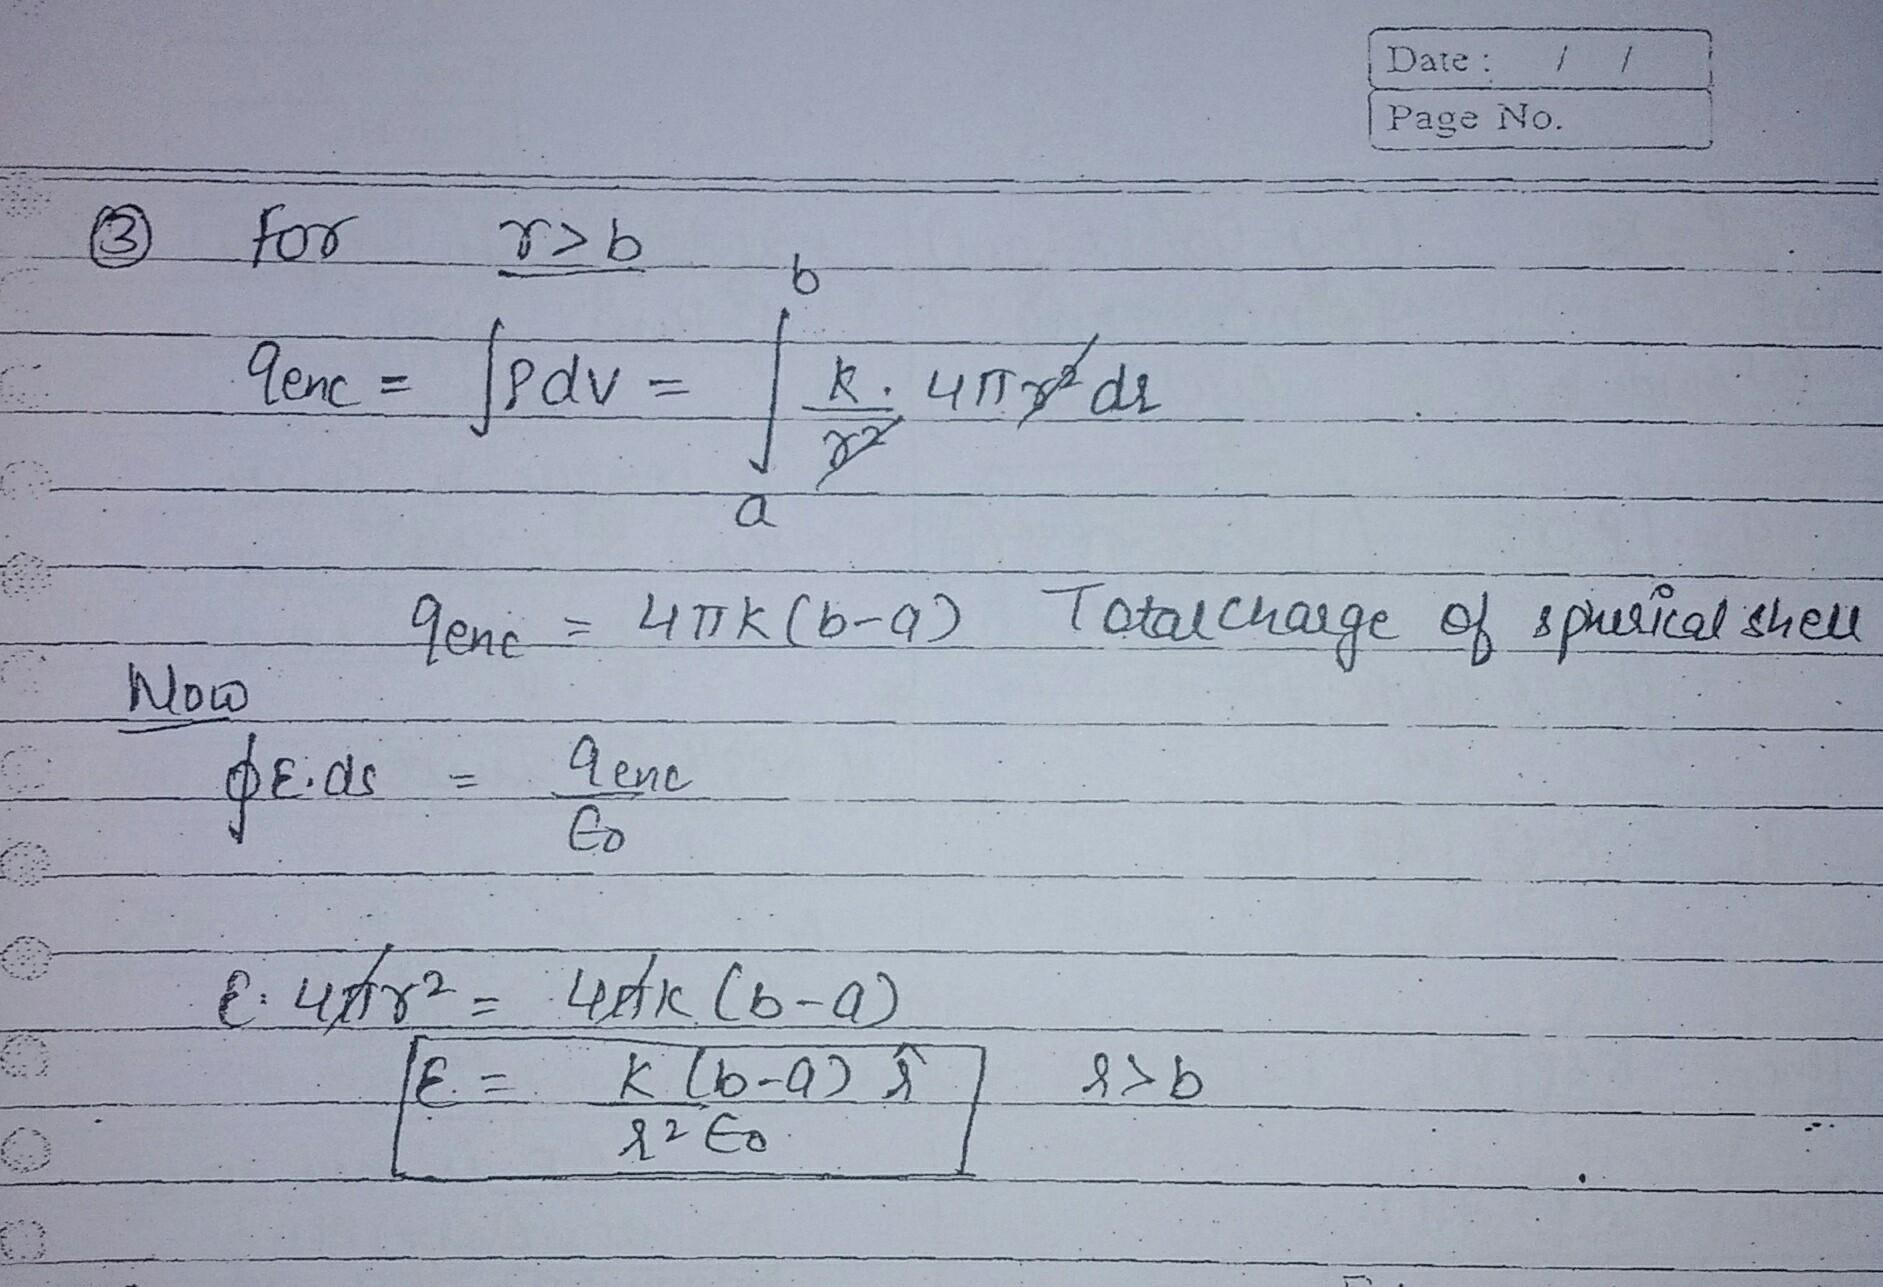 Date : / /
Page No.
③ for r>b
qenc = ∫ρdv = ∫ₐᵇ k/r² . 4πr²dr
qenc = 4πk(b-a) Total charge of spherical shell
Now
∮E.ds = qenc/ϵ₀
E. 4πr² = 4πk (b-a)
E = k (b-a) r̂ / r² ϵ₀ r>b